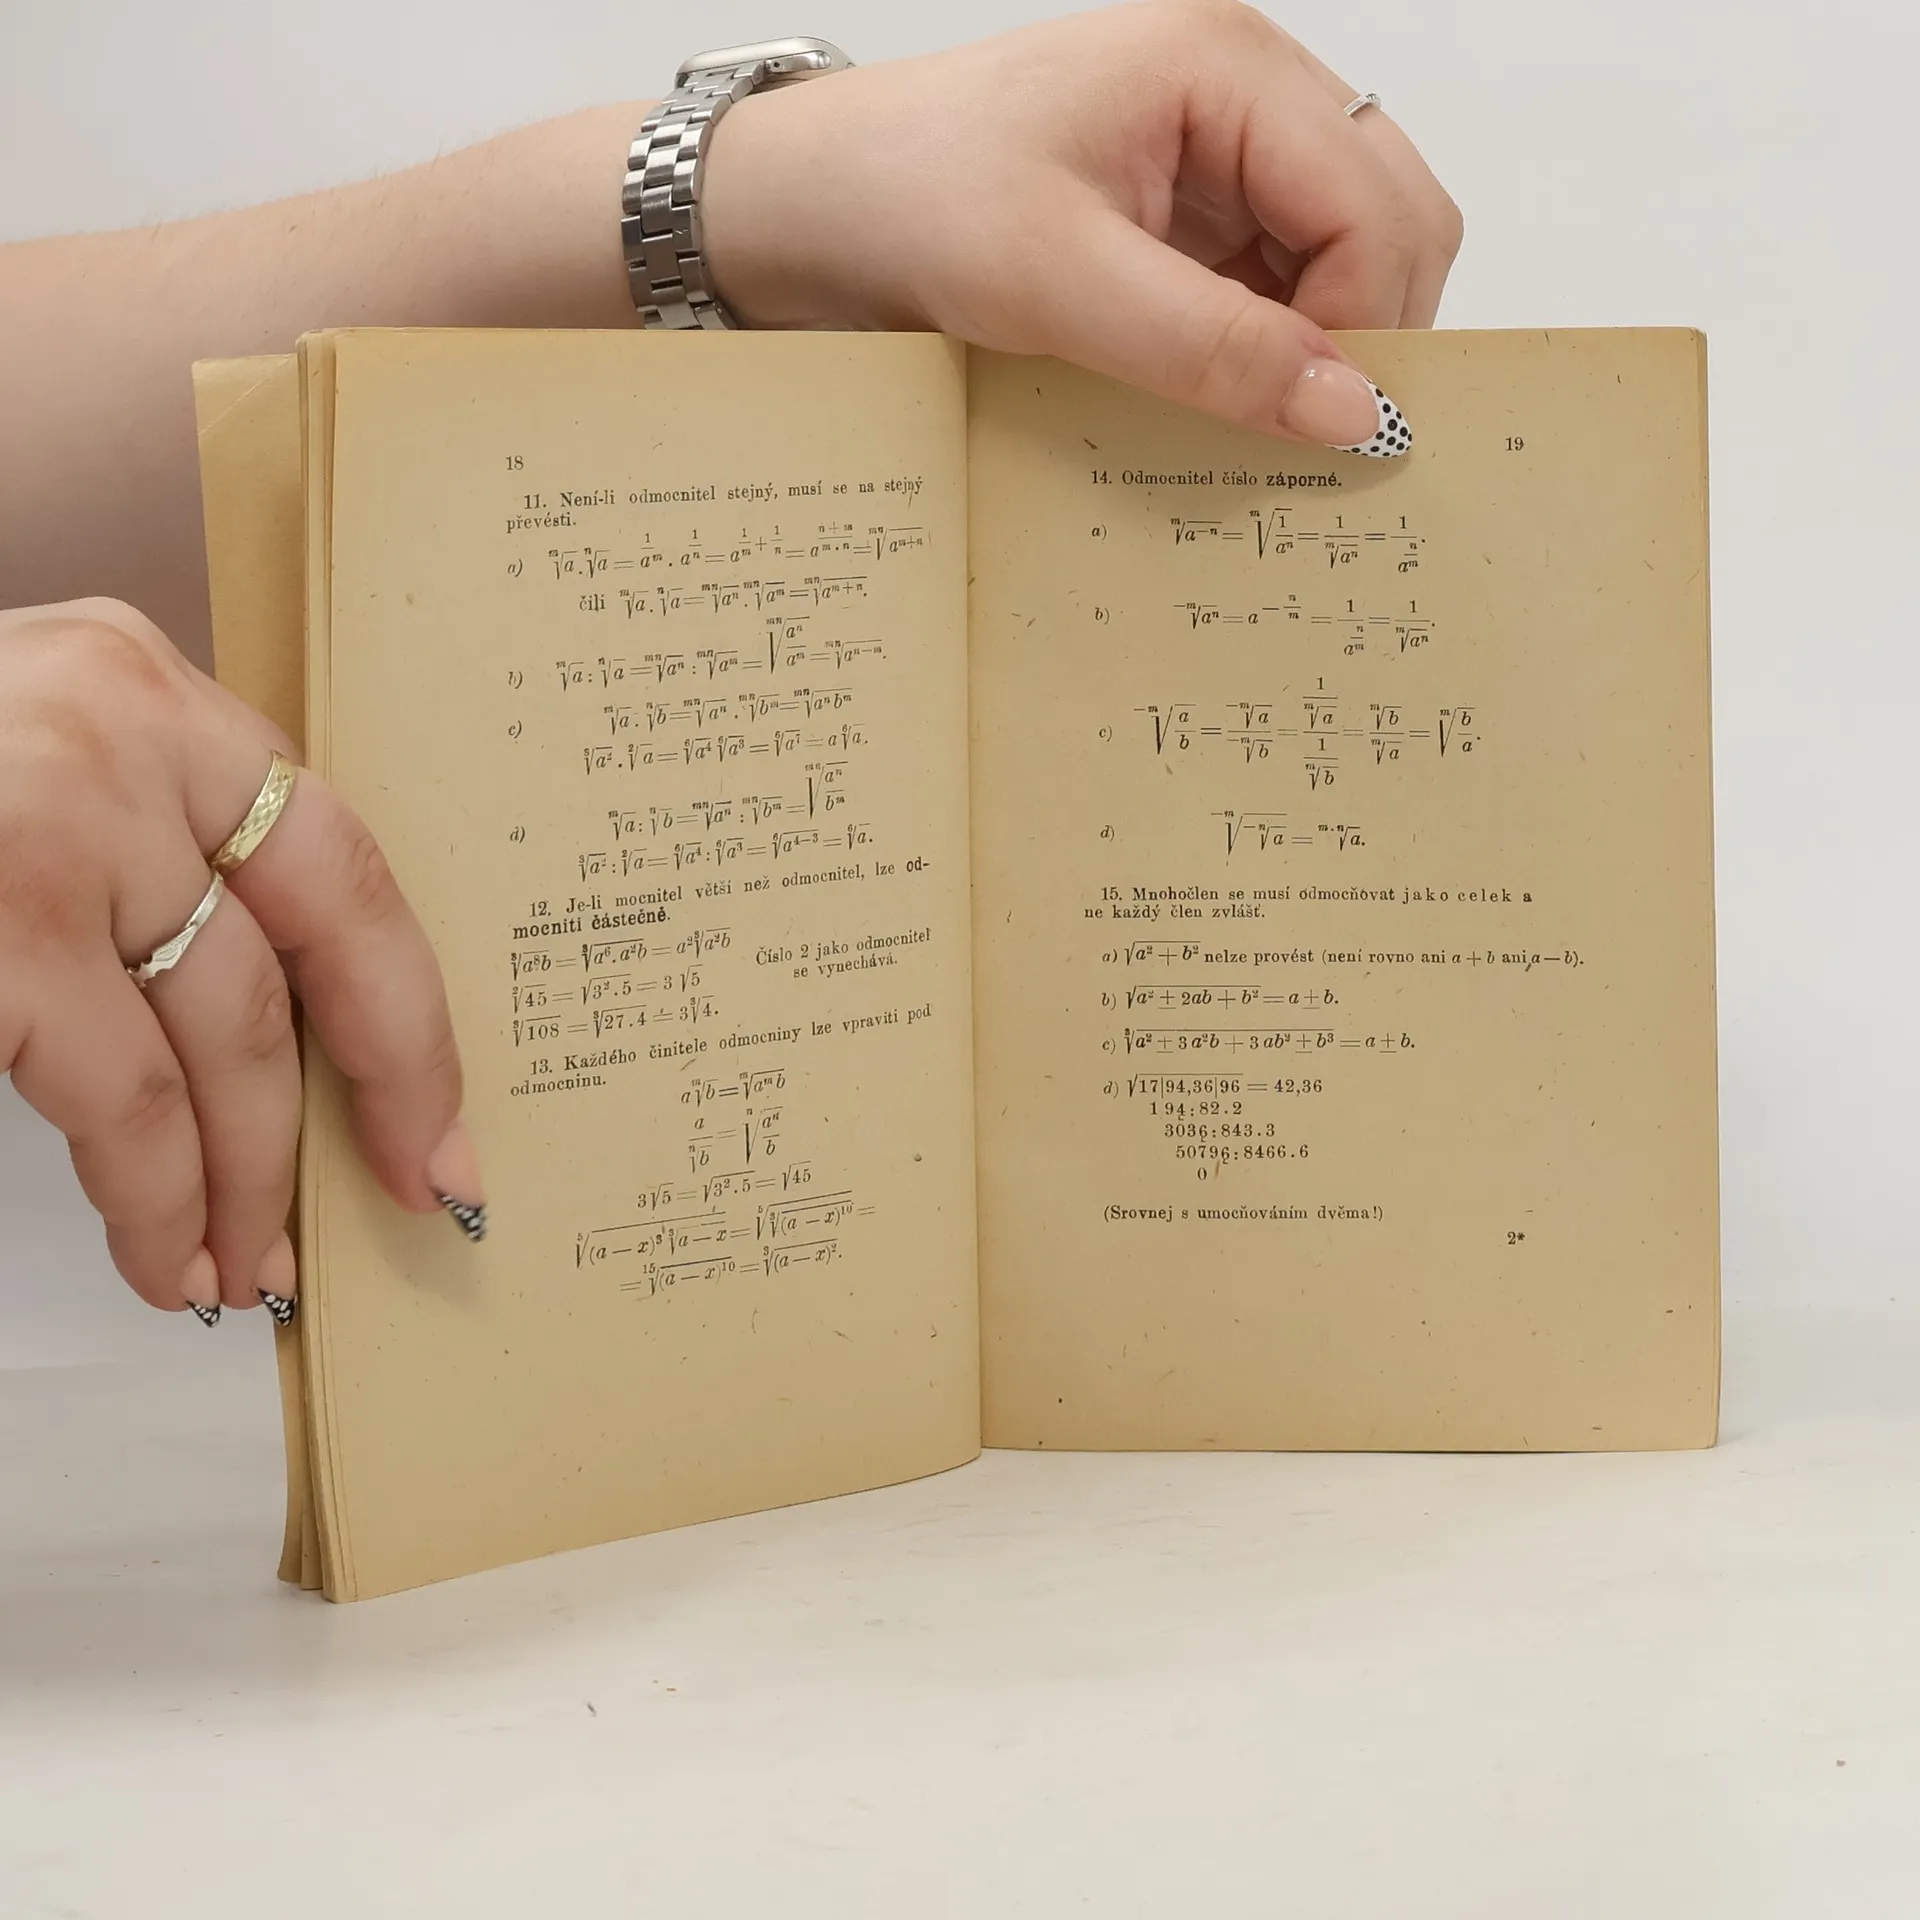 18
11. Není-li odmocnitel stejný, musí se na stejný
převésti.
a) ᵐ√a . ⁿ√a = a^(1/m) . a^(1/n) = a^(1/m + 1/n) = a^((n+m)/(m.n)) = ᵐⁿ√(a^(m+n))
čili ᵐ√a . ⁿ√a = ᵐⁿ√(aⁿ) . ᵐⁿ√(aᵐ) = ᵐⁿ√(a^(m+n)).
b) ᵐ√a : ⁿ√a = ᵐⁿ√(aⁿ) : ᵐⁿ√(aᵐ) = ᵐⁿ√(aⁿ/aᵐ) = ᵐⁿ√(a^(n−m)).
c) ᵐ√a . ⁿ√b = ᵐⁿ√(aⁿ) . ᵐⁿ√(bᵐ) = ᵐⁿ√(aⁿbᵐ)
³√a² . ²√a = ⁶√a⁴ ⁶√a³ = ⁶√a⁷ = a ⁶√a.
d) ᵐ√a : ⁿ√b = ᵐⁿ√(aⁿ) : ᵐⁿ√(bᵐ) = ᵐⁿ√(aⁿ/bᵐ)
³√a² : ²√a = ⁶√a⁴ : ⁶√a³ = ⁶√(a^(4−3)) = ⁶√a.
12. Je-li mocnitel větší než odmocnitel, lze od-
mocniti částečně.
³√(a⁸b) = ³√(a⁶.a²b) = a² ³√(a²b)
Číslo 2 jako odmocnitel
se vynechává.
²√45 = √(3².5) = 3 √5
³√108 = ³√(27.4) = 3 ³√4.
13. Každého činitele odmocniny lze vpraviti pod
odmocninu.
a ᵐ√b = ᵐ√(aᵐb)
a/ⁿ√b = ⁿ√(aⁿ/b)
3√5 = √(3².5) = √45
⁵√((a − x)³ ³√(a − x)) = ⁵√(³√((a − x)¹⁰)) =
= ¹⁵√((a − x)¹⁰) = ³√((a − x)²).
19
14. Odmocnitel číslo záporné.
a) ᵐ√(a⁻ⁿ) = ᵐ√(1/aⁿ) = 1/ᵐ√(aⁿ) = 1/a^(n/m).
b) ⁻ᵐ√(aⁿ) = a^(−n/m) = 1/a^(n/m) = 1/ᵐ√(aⁿ).
c) ⁻ᵐ√(a/b) = ⁻ᵐ√a/⁻ᵐ√b = (1/ᵐ√a)/(1/ᵐ√b) = ᵐ√b/ᵐ√a = ᵐ√(b/a).
d) ⁻ᵐ√(⁻ⁿ√a) = ᵐ·ⁿ√a.
15. Mnohočlen se musí odmocňovat jako celek a
ne každý člen zvlášť.
a) √(a² + b²) nelze provést (není rovno ani a + b ani a — b).
b) √(a² ± 2ab + b²) = a ± b.
c) ³√(a² ± 3 a²b + 3 ab² ± b³) = a ± b.
d) √17|94,36|96 = 42,36
194:82.2
3036:843.3
50796:8466.6
0
(Srovnej s umocňováním dvěma!)
2*